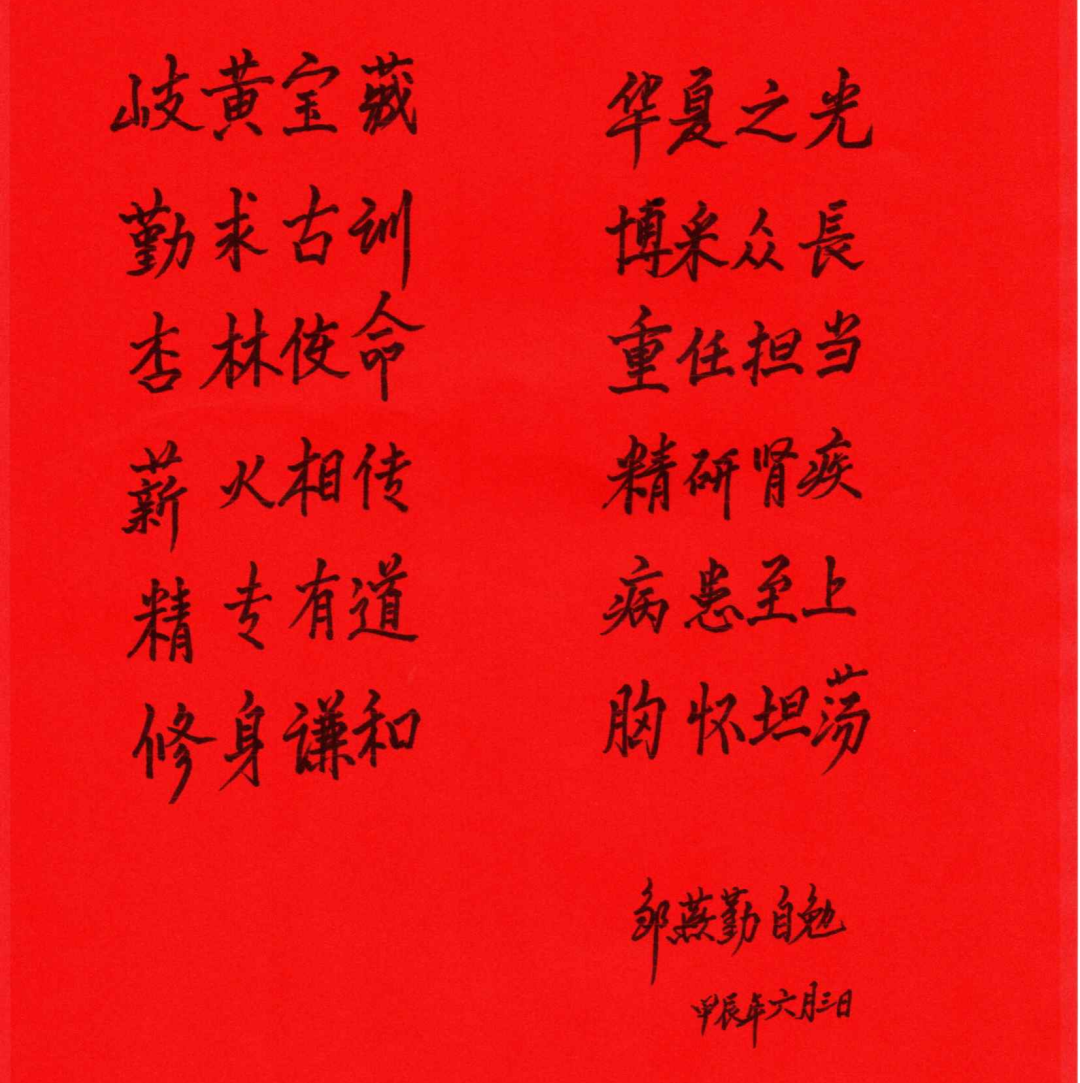 岐黄宝藏 华夏之光
勤求古训 博采众長
杏林使命 重任担当
薪火相传 精研肾疾
精专有道 病患至上
修身谦和 胸怀坦荡
邹燕勤自勉
甲辰年六月三日